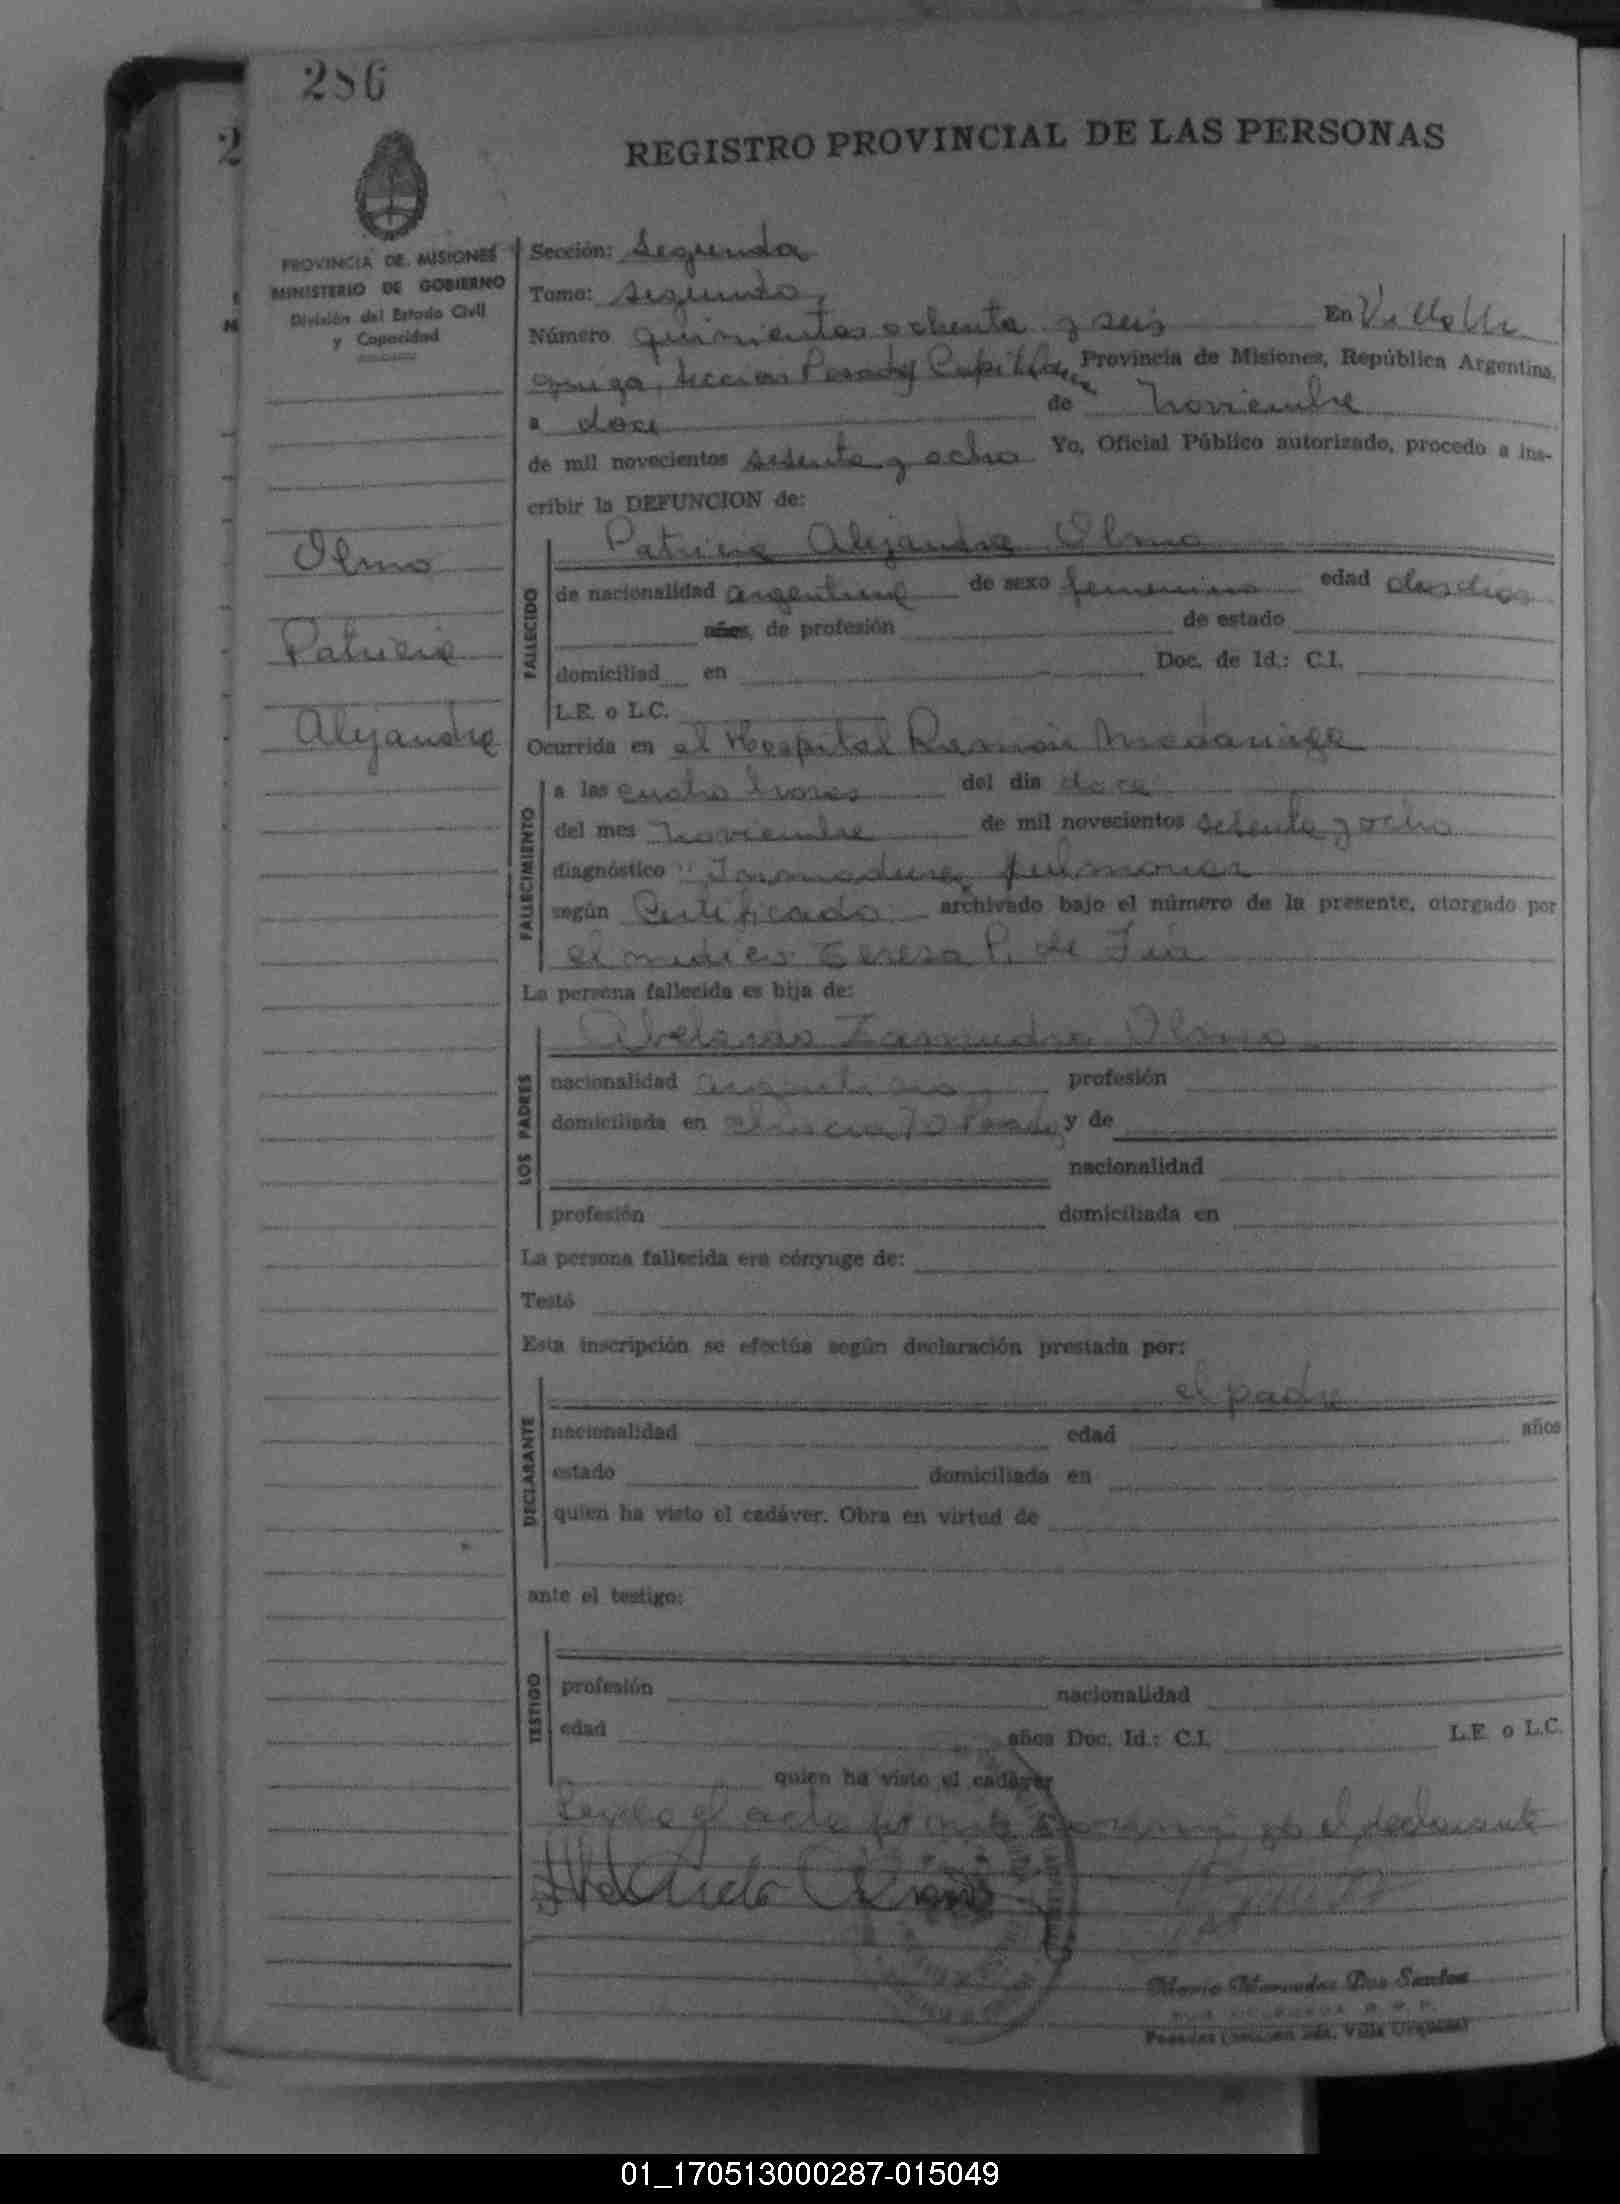 286
REGISTRO PROVINCIAL DE LAS PERSONAS
PROVINCIA DE MISIONES
MINISTERIO DE GOBIERNO
División del Estado Civil
y Capacidad
Sección: Segunda
Tomo: Segundo
Número quinientos ochenta y seis En Villa Ur
quiza, Seccion Posadas Capital Provincia de Misiones, República Argentina,
a doce de Noviembre
de mil novecientos setenta y ocho Yo, Oficial Público autorizado, procedo a ins-
cribir la DEFUNCION de:
Olmo
Patricia
Alejandra
FALLECIDO
Patricia Alejandra Olmo
de nacionalidad argentina de sexo femenino edad dos dias
años, de profesión de estado
domiciliad en Doc. de Id.: C.I.
L.E. o L.C.
Ocurrida en el Hospital Ramón Madariaga
FALLECIMIENTO
a las cuatro horas del dia doce
del mes Noviembre de mil novecientos setenta y ocho
diagnóstico Inmadurez pulmonar
según Certificado archivado bajo el número de la presente, otorgado por
el medico Teresa P. de
La persona fallecida es hija de:
LOS PADRES
Abelardo Olmo
nacionalidad argentino profesión
domiciliada en y de
nacionalidad
profesión domiciliada en
La persona fallecida era cónyuge de:
Testó
Esta inscripción se efectúa según declaración prestada por:
DECLARANTE
el padre
nacionalidad edad años
estado domiciliada en
quien ha visto el cadáver. Obra en virtud de
ante el testigo:
TESTIGO
profesión nacionalidad
edad años Doc. Id.: C.I. L.E. o L.C.
quien ha visto el cadáver
el acta el declarante
Abelardo Olmo
Dos Santos
Posadas Villa Urquiza
01_170513000287-015049